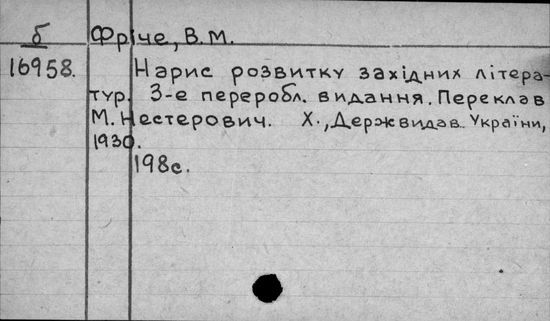 б
Фріче, В.М.
16958.
Нарис розвитку західних літера-
тур. 3-е переробл. видання. Переклав
М. Нестерович. Х., Держвидав. України,
1930.
198с.